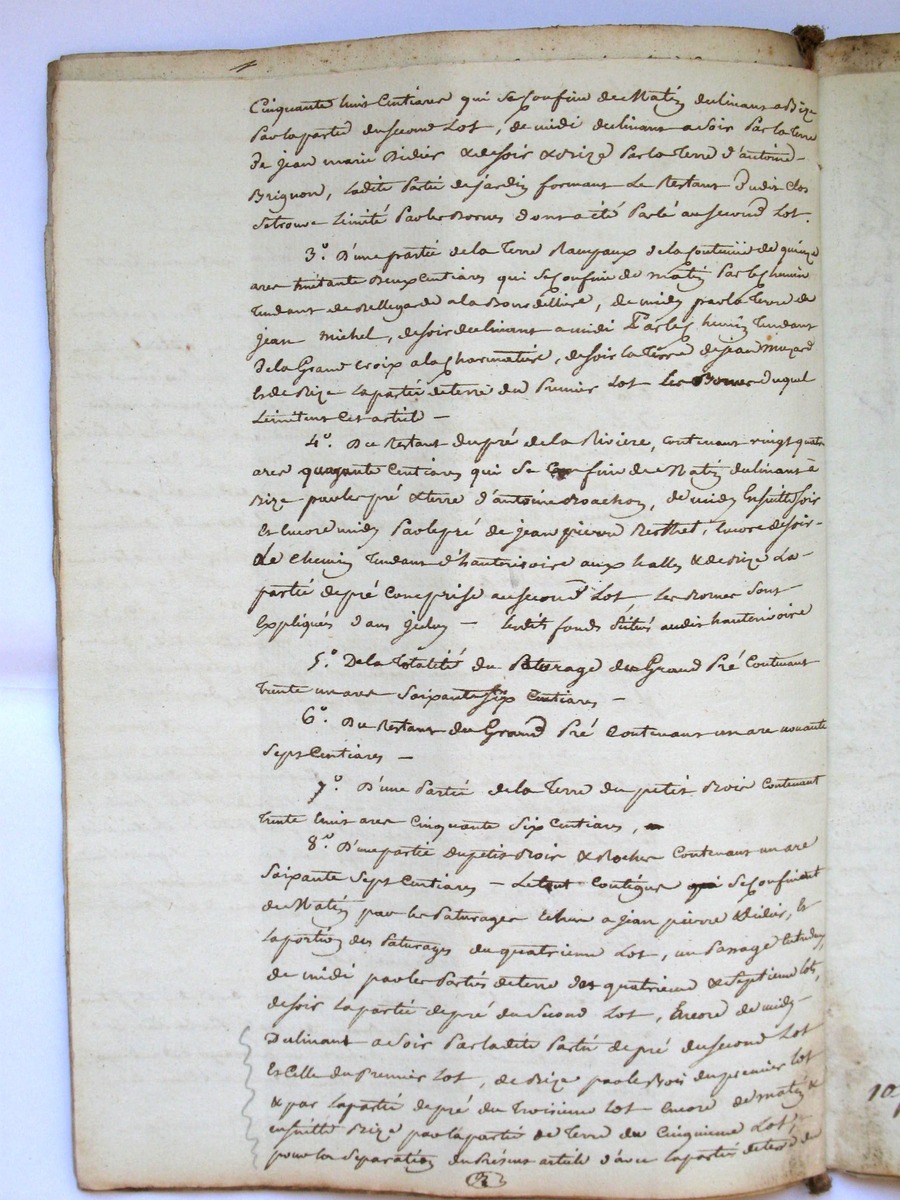 Cinquante huit Centiares qui se Confine de Matin declinant a Bize
Par la partie du second Lot, de midi declinant a soir Par la Terre
de jean marie Didier & de soir & Bize Par la Terre d'antoine
Brignon, Ladite Partie de jardin formant Le Restant dudit Clos
se trouve Limité Par les Bornes dont a été Parlé au second Lot.
3.° D'une partie de la Terre Rampaux de la Contenüe de quinze
ares huitante Deux Centiares qui se Confine de matin Par le Chemin
Tendant de Bellegarde a la , de midy par la Terre de
jean Michel, de soir declinant a midi Par le Chemin Tendant
De la Grand Croix a la Charmatière, de soir la Terre de jean
et de Bize La partie de terre du Premier Lot Les Bornes duquel
Limitent Cet article —
4.° Du Restant du pré de la Riviere, contenant vingt quatre
ares quarante Centiares qui se Confine de Matin declinant à
Bize par le pré & terre d'antoine , de midy Ensuitte soir
et Encore midy Par le pré de jean pierre Berthet, Encore de soir
Le Chemin Tendant d'hauterivoire aux halles & de Bize La
partie de pré Comprise au second Lot Les Bornes sont
Expliqués dans jceluy — Lesdits fonds situés audit hauterivoire
5.° De la Totalité du Paturage du Grand Pré Contenant
Trente un ares Soixante six Centiares —
6.° Du Restant du Grand Pré Contenant un are nonante
Sept Centiares —
7.° D'une Partie de la Terre du petit Bois Contenant
Trente huit ares Cinquante Six Centiares,
8.° D'une partie du petit Bois & Rocher Contenant un are
Soixante Sept Centiares — Le tout Contigue se Confinent
de Matin par les Paturages Echus a jean pierre Didier, et
La portion des Paturages du quatrieme Lot, un Passage Entredeux,
de midi par les Parties de terre des quatrieme & Septieme lots,
de soir La partie de pré du Second Lot, Encore de midy
Declinant a Soir Par ladite Partie de pré du second Lot
et Celle du Premier Lot, de Bize par le Bois du premier lot
& par La partie de pré du Troisieme Lot Encore de matin &
ensuitte Bize par la partie de Terre du Cinquieme Lot,
pour la Separation du Présent article d'avec la partie de terre du